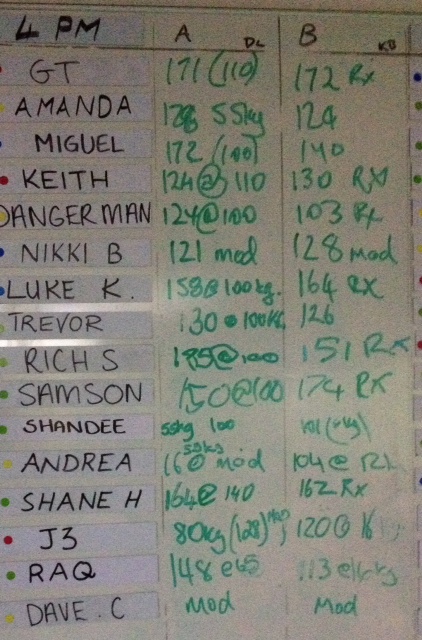 4 PM A DL B KB
GT 171 (110) 172 Rx
AMANDA 128 55kg 124
MIGUEL 172 (100) 140
KEITH 124@ 110 130 RX
DANGERMAN 124@100 103 Rx
NIKKI B 121 mod 128 mod
LUKE K. 158@100kg. 164 RX
TREVOR 130@100KG 126
RICH S 185@100 151 RX
SAMSON 150@100 174 RX
SHANDEE 55kg 100
ANDREA 160 55kg mod 104@
SHANE H 164@ 140 162 Rx
J3 80kg (128) 120@ 16
RAQ 148@65 113@16kg
DAVE. C mod mod